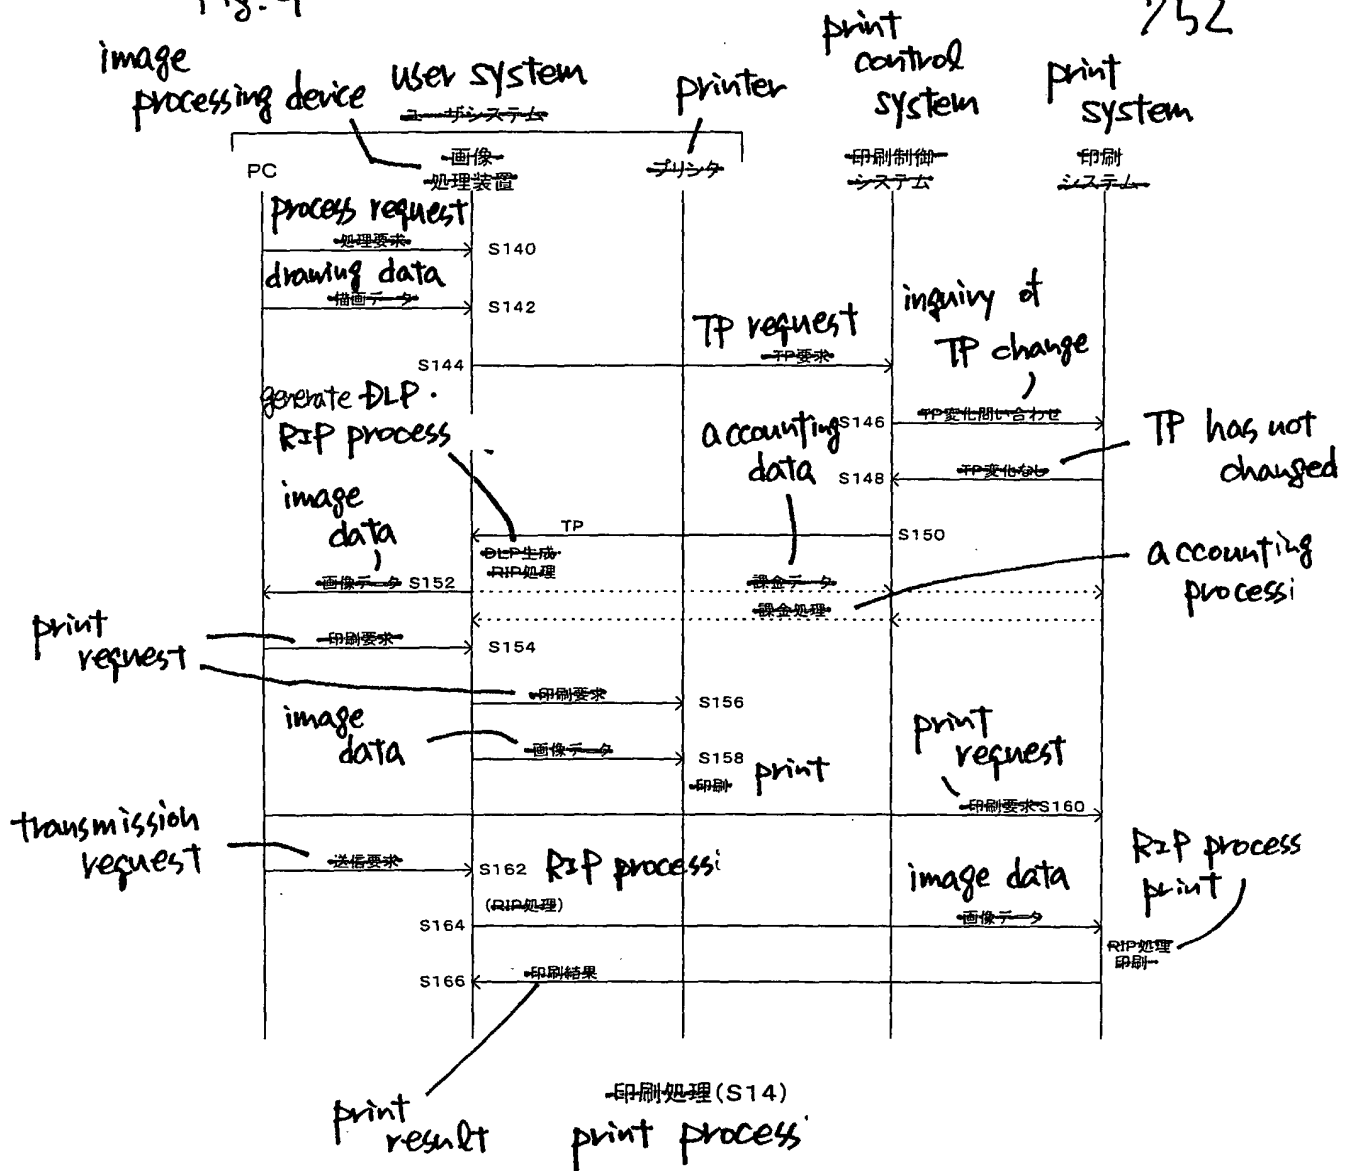 Fig. 9
752
image
processing device
user system
ユーザシステム
printer
print
control
system
print
system
PC
画像
処理装置
プリンタ
印刷制御
システム
印刷
システム
process request
処理要求
S140
drawing data
描画データ
S142
TP request
TP要求
S144
inquiry of
TP change
TP変化問い合わせ
S146
generate DLP・
RIP process
accounting
data
TP has not
changed
TP変化なし
S148
image
data
TP
S150
DLP生成
RIP処理
accounting
processi
画像データ S152
課金データ
課金処理
print
request
印刷要求
S154
印刷要求
S156
image
data
画像データ
S158
印刷
print
print
request
印刷要求S160
transmission
request
送信要求
S162
RIP processi
(RIP処理)
image data
画像データ
S164
RIP process
print
RIP処理
印刷
S166
印刷結果
印刷処理(S14)
print
result
print process